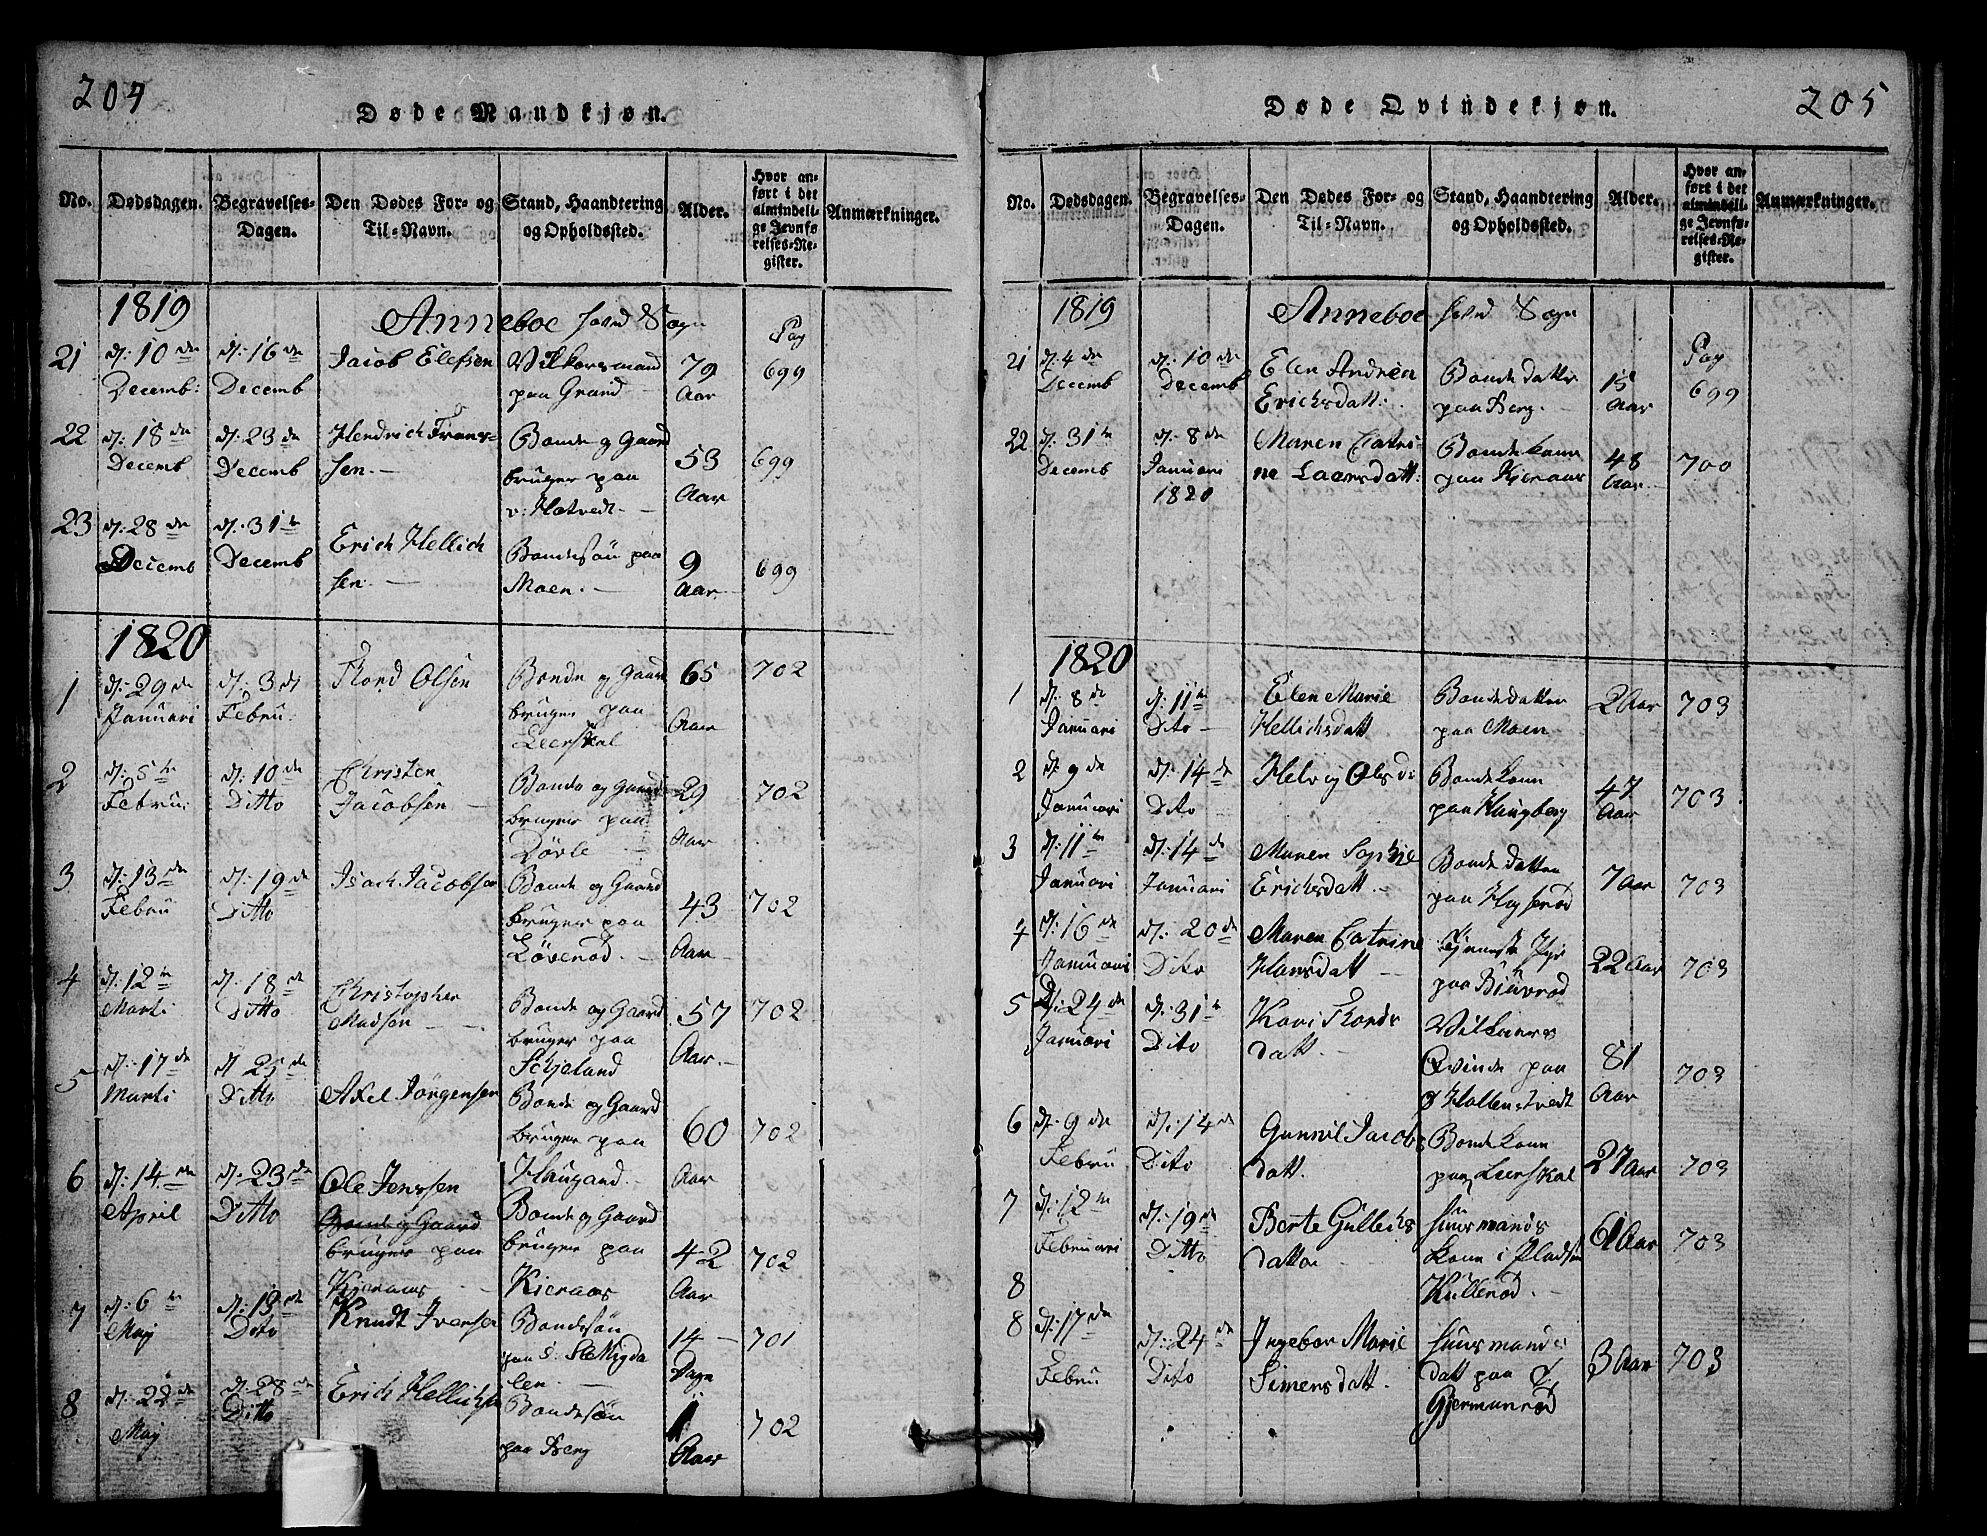 204
Døde Mandkjøn.
No.
Dødsdagen.
Begravelses-
Dagen.
Den Dødes For- og
Til-Navn.
Stand, Haandtering
og Opholdssted.
Alder.
Hvor an-
ført i det
almindeli-
ge Jevnfø-
relses-Re-
gister.
Anmærkninger.
1819
Anneboe hoved Sogn
Pag
21
d: 10de
Decemb:
d: 16de
Decemb
Jacob Elefsen
Vilkorsmand
paa Grand
79
Aar
699
22
d: 18de
Decemb
d: 23de
Decemb
Hendrich Frans-
sen.
Bonde og Gaard
bruger paa
v: Hotvedt
53
Aar
699
23
d: 28de
Decemb
d: 31te
Decemb
Erich Hellich
sen.
Bondesøn paa
Moen.
9
Aar
699
1820
1
d: 29de
Januari
d: 3de
Febru:
Thord Olsen
Bonde og Gaard
bruger paa
Leerskal
65
Aar
702
2
d: 5te
Febru:
d: 10de
Ditto
Christen
Jacobsen
Bonde og Gaard
bruger paa
Dørle
29
Aar
702
3
d: 13de
Febru
d: 19de
Ditto
Isach Jacobsen
Bonde og Gaard
bruger paa
Løverod.
43
Aar
702
4
d: 12te
Marti
d: 18de
Ditto
Christopher
Madsen
Bonde og Gaard
bruger paa
Schjeland
57
Aar.
702
5
d: 17de
Marti
d: 25de
Ditto
Axel Jørgensen
Bonde og Gaard
bruger paa
Haugand.
60
Aar
702
6
d: 14de
April
d: 23de
Ditto
Ole Jenssen
Bonde og Gaard
bruger paa
Kieraas
Bonde og Gaard
bruger paa
Kieraas
42
Aar
702
7
d: 6te
Maj
d: 13de
Dito
Knudt Iversen
Bondesøn
paa S: Migda
len.
14
Dage
701
8
d: 22de
Maj
d: 28de
Ditto
Erich Hellichsen
Bondesøn
paa Berg
1
Aar
702
205
Døde Qvindekjøn.
No.
Dødsdagen.
Begravelses-
Dagen.
Den Dødes For- og
Til-Navn.
Stand, Haandtering
og Opholdssted.
Alder.
Hvor an-
ført i det
almindeli-
ge Jevnfø-
relses-Re-
gister.
Anmærkninger.
1819
Anneboe hoved Sogn
Pag
21
d: 4de
Decemb
d: 10de
Decemb
Elen Andrea
Erichsdatt:
Bonde datter
paa Berg.
15
Aar
699
22
d: 31te
Decemb
d: 8de
Januari
1820
Maren Catri-
ne Laersdatt:
Bondekone
paa Kieraas
48
Aar
700
1820
1
d: 8de
Januari
d: 11te
Dito
Elen Marie
Hellichsdatt
Bondedatter
paa Moen
2 Aar
703
2
d: 9de
Januari
d: 14de
Dito
Helvig Olsd:
Bondekone
paa Haugberg
47
Aar
703
3
d: 11te
Januari
d: 14de
Januari
Maren Sophie
Erichsdatt
Bonde datter
paa Høyserød
7 Aar
703
4
d: 16de
Januari
d: 20de
Dito
Maren Catrine
Hansdatt
Tjeneste Pige
paa
22 Aar
703
5
d: 24de
Januari
d: 31te
Dito
Kari Thords
datt.
Vilkaars
Qvinde paa
Ø Hallenstvedt
81
Aar
703
6
d: 9de
Febru
d: 14de
Dito
Gunnil Jacobs
datt.
Bondekone
paa Leerskal
27 Aar
703
7
d: 12te
Februari
d: 19de
Ditto
Berte Gullichs
datter
Huusmands
kone i Pladsen
Kullerød.
61 Aar
703
8
8
d: 17de
Febru
d: 24de
Dito
Ingebor Marie
Simensdatt.
Huusmands
datt paa
Gjermunrød
3 Aar
703